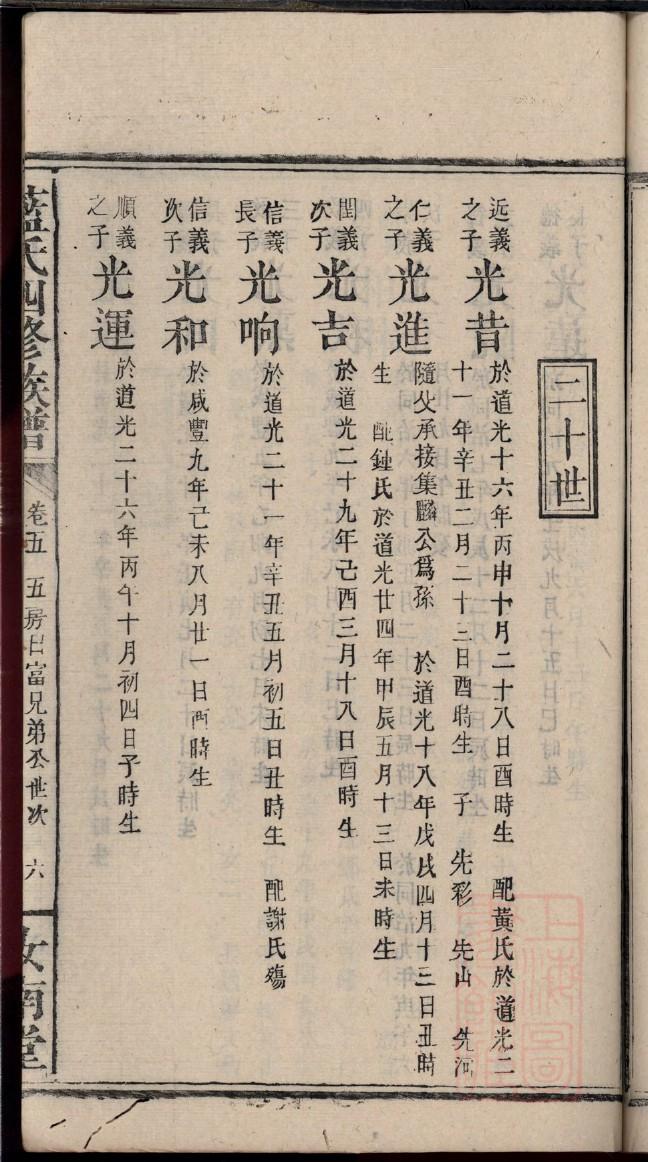 二十世
近義之子 光昔 於道光十六年丙申十月二十八日酉時生 配黃氏於道光二
十一年辛丑二月二十三日酉時生 子 先彩 先山 先河
仁義之子 光進 隨父承接集麟公爲孫 於道光十八年戊戌四月十三日丑時
生 配鍾氏於道光廿四年甲辰五月十三日未時生
閏義次子 光吉 於道光二十九年己酉三月十八日酉時生
信義長子 光响 於道光二十一年辛丑五月初五日丑時生 配謝氏殤
信義次子 光和 於咸豐九年己未八月廿一日酉時生
順義之子 光運 於道光二十六年丙午十月初四日子時生
藍氏四修族譜 卷五 五房日富兄弟公世次 六 汝南堂